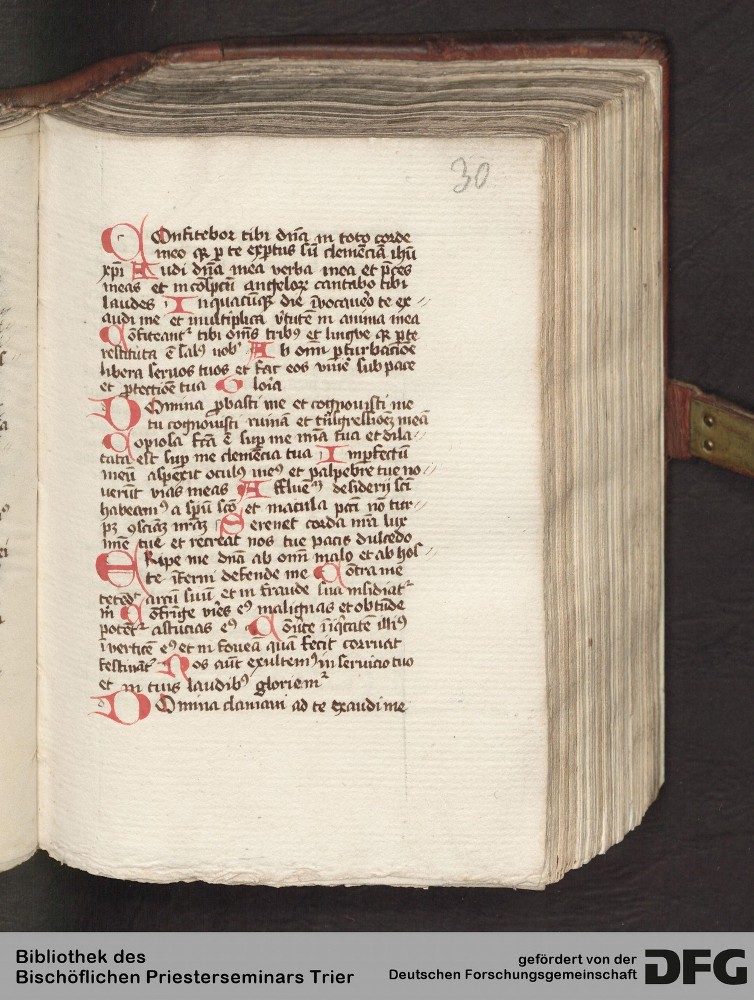 30
Confitebor tibi dn̄a in toto corde
meo qr p te exp̄tus sū clemēciā ihū
xp̄i Audi dn̄a mea verba mea et p̄ces
meas et in cōspectu angelorꝝ cantabo tibi
laudes In quacūqꝫ die īvocavero te ex
audi me et multiplica v̄tutē in anima mea
Cōfiteant᷑ tibi om̄s tribꝰ et lingue qr p te
restituta ē salꝰ nob᷒ Ab om̄i p̄turbacōe
libera servos tuos et fac eos vivē sub pace
et p̄tectiōe tua Gloīa
Domina p̄basti me et cognovisti me
tu cognovisti ruinam et tn̄sgressiōeꝫ meā
Copiosa fc̄a ē sup me mīa tua et dila
tata est sup me clemēcia tua Imp̄fectū
meū aspexit oculꝰ meꝰ et palpebre tue no
verūt vias meas Affluēꝰ desiderij sc̄i
habeamꝰ a sp̄u sc̄o et macula pccī nō tur
pꝫ 9sciāꝫ n̄rāꝫ Serenet corda nr̄a lux
mīe tue et recreat nos tue pacis dulcedo
Eripe me dn̄a ab om̄i malo et ab hos
te īferni defende me Contra me
tetēdit arcū suū et in fraude sua insidiat᷑
m̄ Cōfringe vires eꝰ malignas et obtūde
potēt᷑ astucias eꝰ īiq̄tatē illiꝰ
ī verticē eꝰ et in foveā quā fecit corruat
festināt᷑ Nos aūt exultemꝰ in servicio tuo
et in tuis laudibꝰ gloriem᷑
Domina clamavi ad te exaudi me
Bibliothek des
Bischöflichen Priesterseminars Trier
gefördert von der
Deutschen Forschungsgemeinschaft
DFG